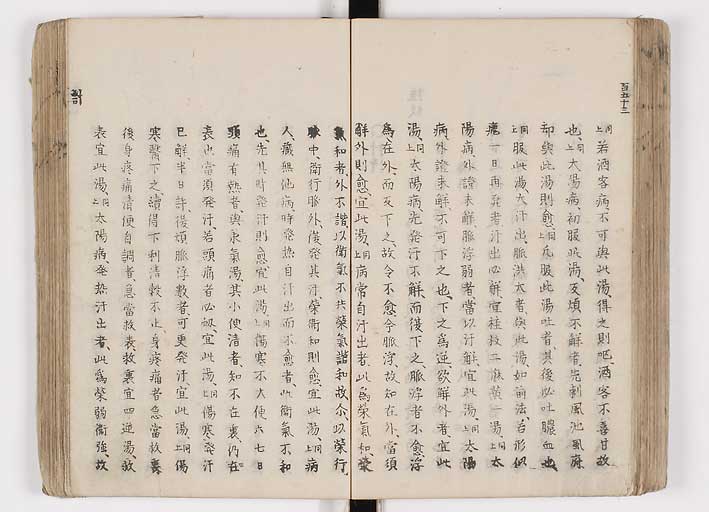 百五十三
上同若酒客病不可與此湯得之則吧酒客不喜甘故
也、上同太陽病初服此湯反煩不解者先刺風池風府
却與此湯則愈、上同凡服此湯吐者其後必吐膿血也
上同服此湯大汗出脈洪大者與此湯如前法若形似
瘧一日再発者汗出必解宜桂枝二麻黄一湯上同太
陽病外證未解脈浮弱者當以汗解宜此湯上同太陽
病外證未解不可下之也、下之為逆欲解外者宜此
湯上同太陽病先発汗不解而復下之脈浮者不愈浮
為在外而反下之故令不愈今脈浮故知在外當須
解外則愈宜此湯上同病常自汗出者此為榮氣和榮
氣和者外不諧以衛氣不共榮氣諧和故尒以榮行
脉中衛行脈外復発其汗榮衛和則愈宜此湯上同病
人藏無他病時発熱自汗出而不愈者此衛氣不和
也先其時発汗則愈宜此湯上同傷寒不大便六七日
頭痛有熱者與承氣湯其小便清者知不在裏仍在
表也當須発汗若頭痛者必衂宜此湯上同傷寒発汗
已解半日許復煩脈浮数者可更発汗宜此湯上同傷
寒醫下之續得下利清穀不止身疼痛者急當救裏
後身疼痛清便自調者急當救表救裏宜四逆湯救
表宜此湯上同太陽病発热汗出者此為榮弱衛強故